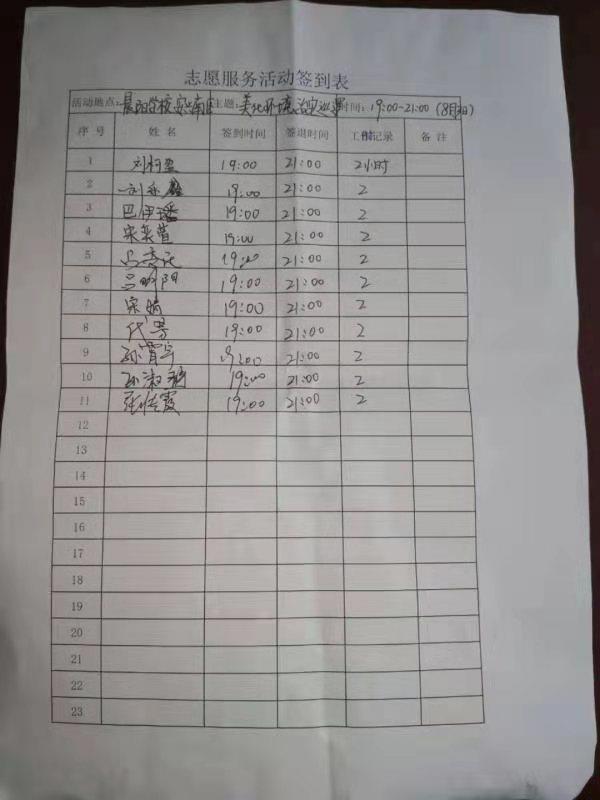 志愿服务活动签到表
活动地点: 晨阳学校 主题: 美化环境治安巡逻 时间: 19:00-21:00
序号 姓名 签到时间 签退时间 工作记录 备注
1 19:00 21:00 2小时
2 19:00 21:00 2
3 巴伊璠 19:00 21:00 2
4 宋奕萱 19:00 21:00 2
5 19:00 21:00 2
6 吕明阳 19:00 21:00 2
7 宋娟 19:00 21:00 2
8 代芳 19:00 21:00 2
9 孙宵宇 19:00 21:00 2
10 孙淑 19:00 21:00 2
11 张 霞 19:00 21:00 2
12
13
14
15
16
17
18
19
20
21
22
23